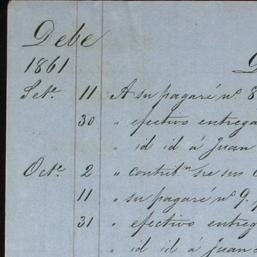 Debe
1861
Setᵉ. 11 A su pagaré nº 8
30 " efectivo entrega
" id id á Juan
Octᵉ. 2 " contribᵒⁿ sre sus
11 " su pagaré nº 9.
31 " efectivo entreg
" id id á Juan